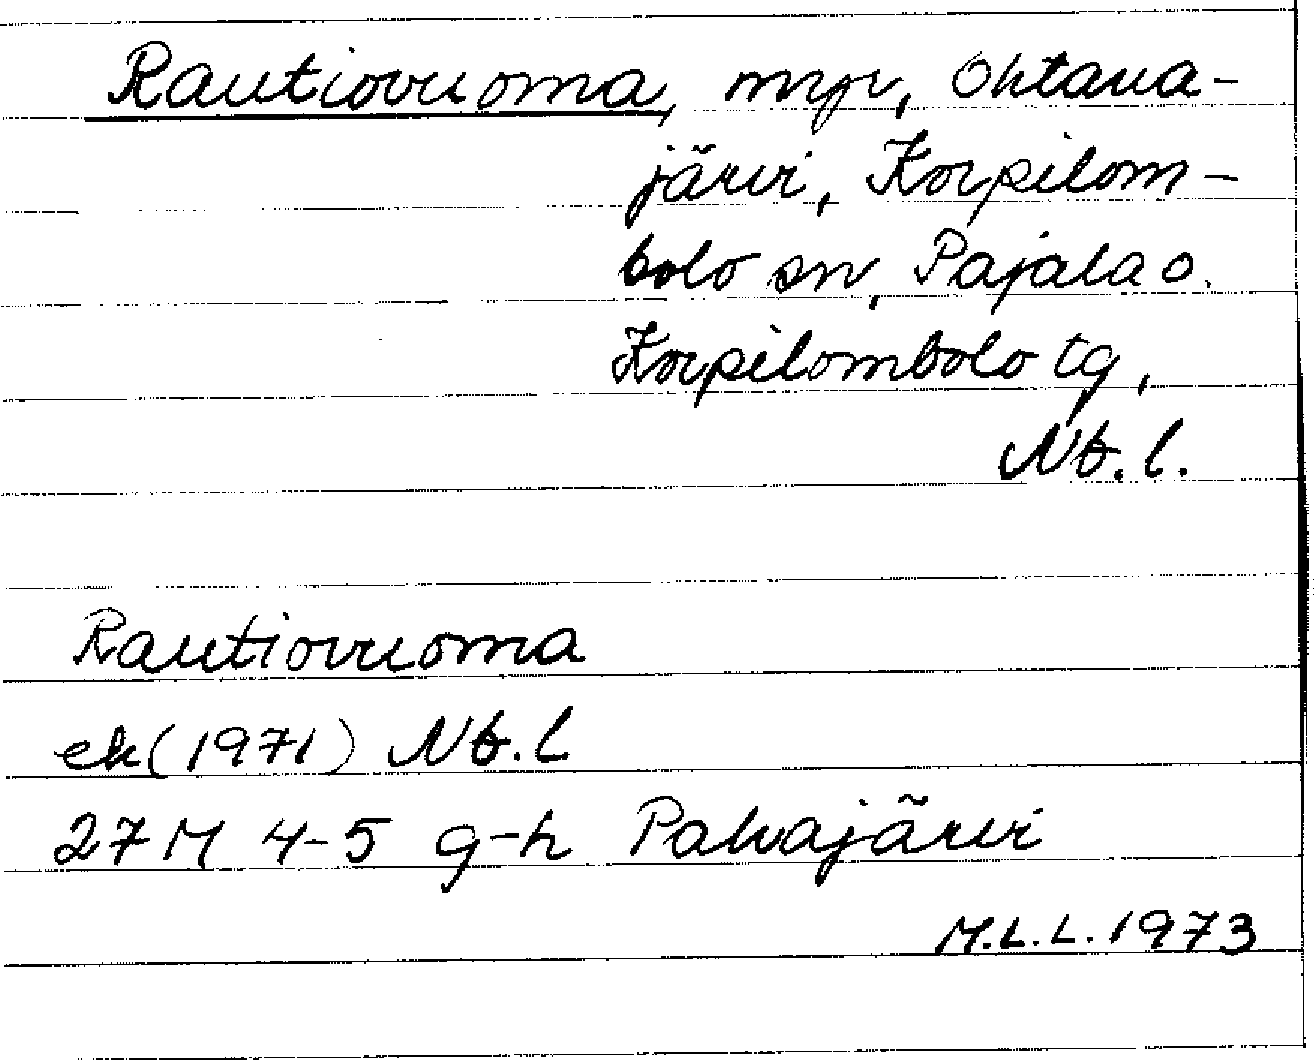 Rautiovuoma, myr, Ohtana-
järvi, Korpilom-
bolo sn, Pajala o.
Korpilombolo tg,
Nb. l.
Rautiovuoma
ek (1971) Nb. l
27 M 4-5 g-h Palvajärvi
M.L.L. 1973